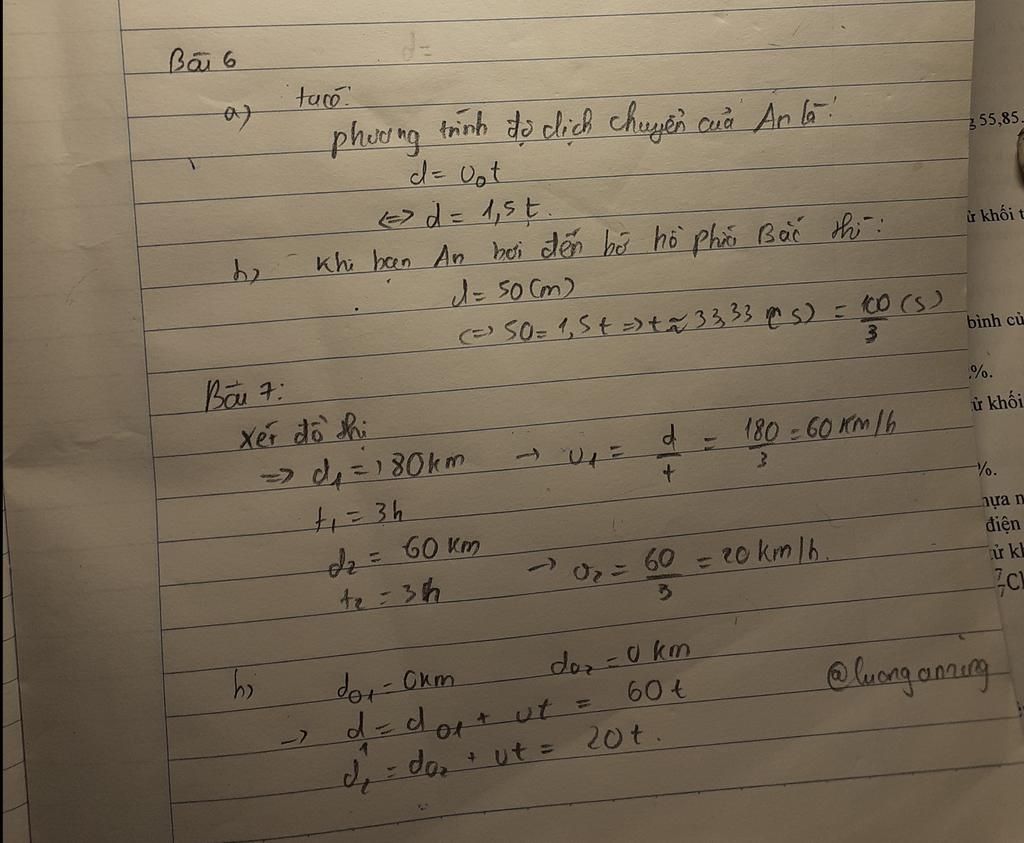 d=
Bài 6
a) ta có:
phương trình độ dịch chuyển của An là:
d = v₀t
<=> d = 1,5t.
b) Khi bạn An bơi đến bờ hồ phía Bắc thì:
d = 50 (m)
<=> 50 = 1,5t => t ≈ 33,33 (s) = 100/3 (s)
Bài 7:
Xét đồ thị
=> d₁ = 180km → v₁ = d/t = 180/3 = 60 km/h
t₁ = 3h
d₂ = 60 km
t₂ = 3h → v₂ = 60/3 = 20 km/h.
b) d₀₁ = 0km d₀₂ = 0 km
→ d₁ = d₀₁ + vt = 60t
d₂ = d₀₂ + vt = 20t.
@luonganning
g 55,85.
ử khối t
bình củ
%.
ử khối
%.
hựa n
điện
ử kh